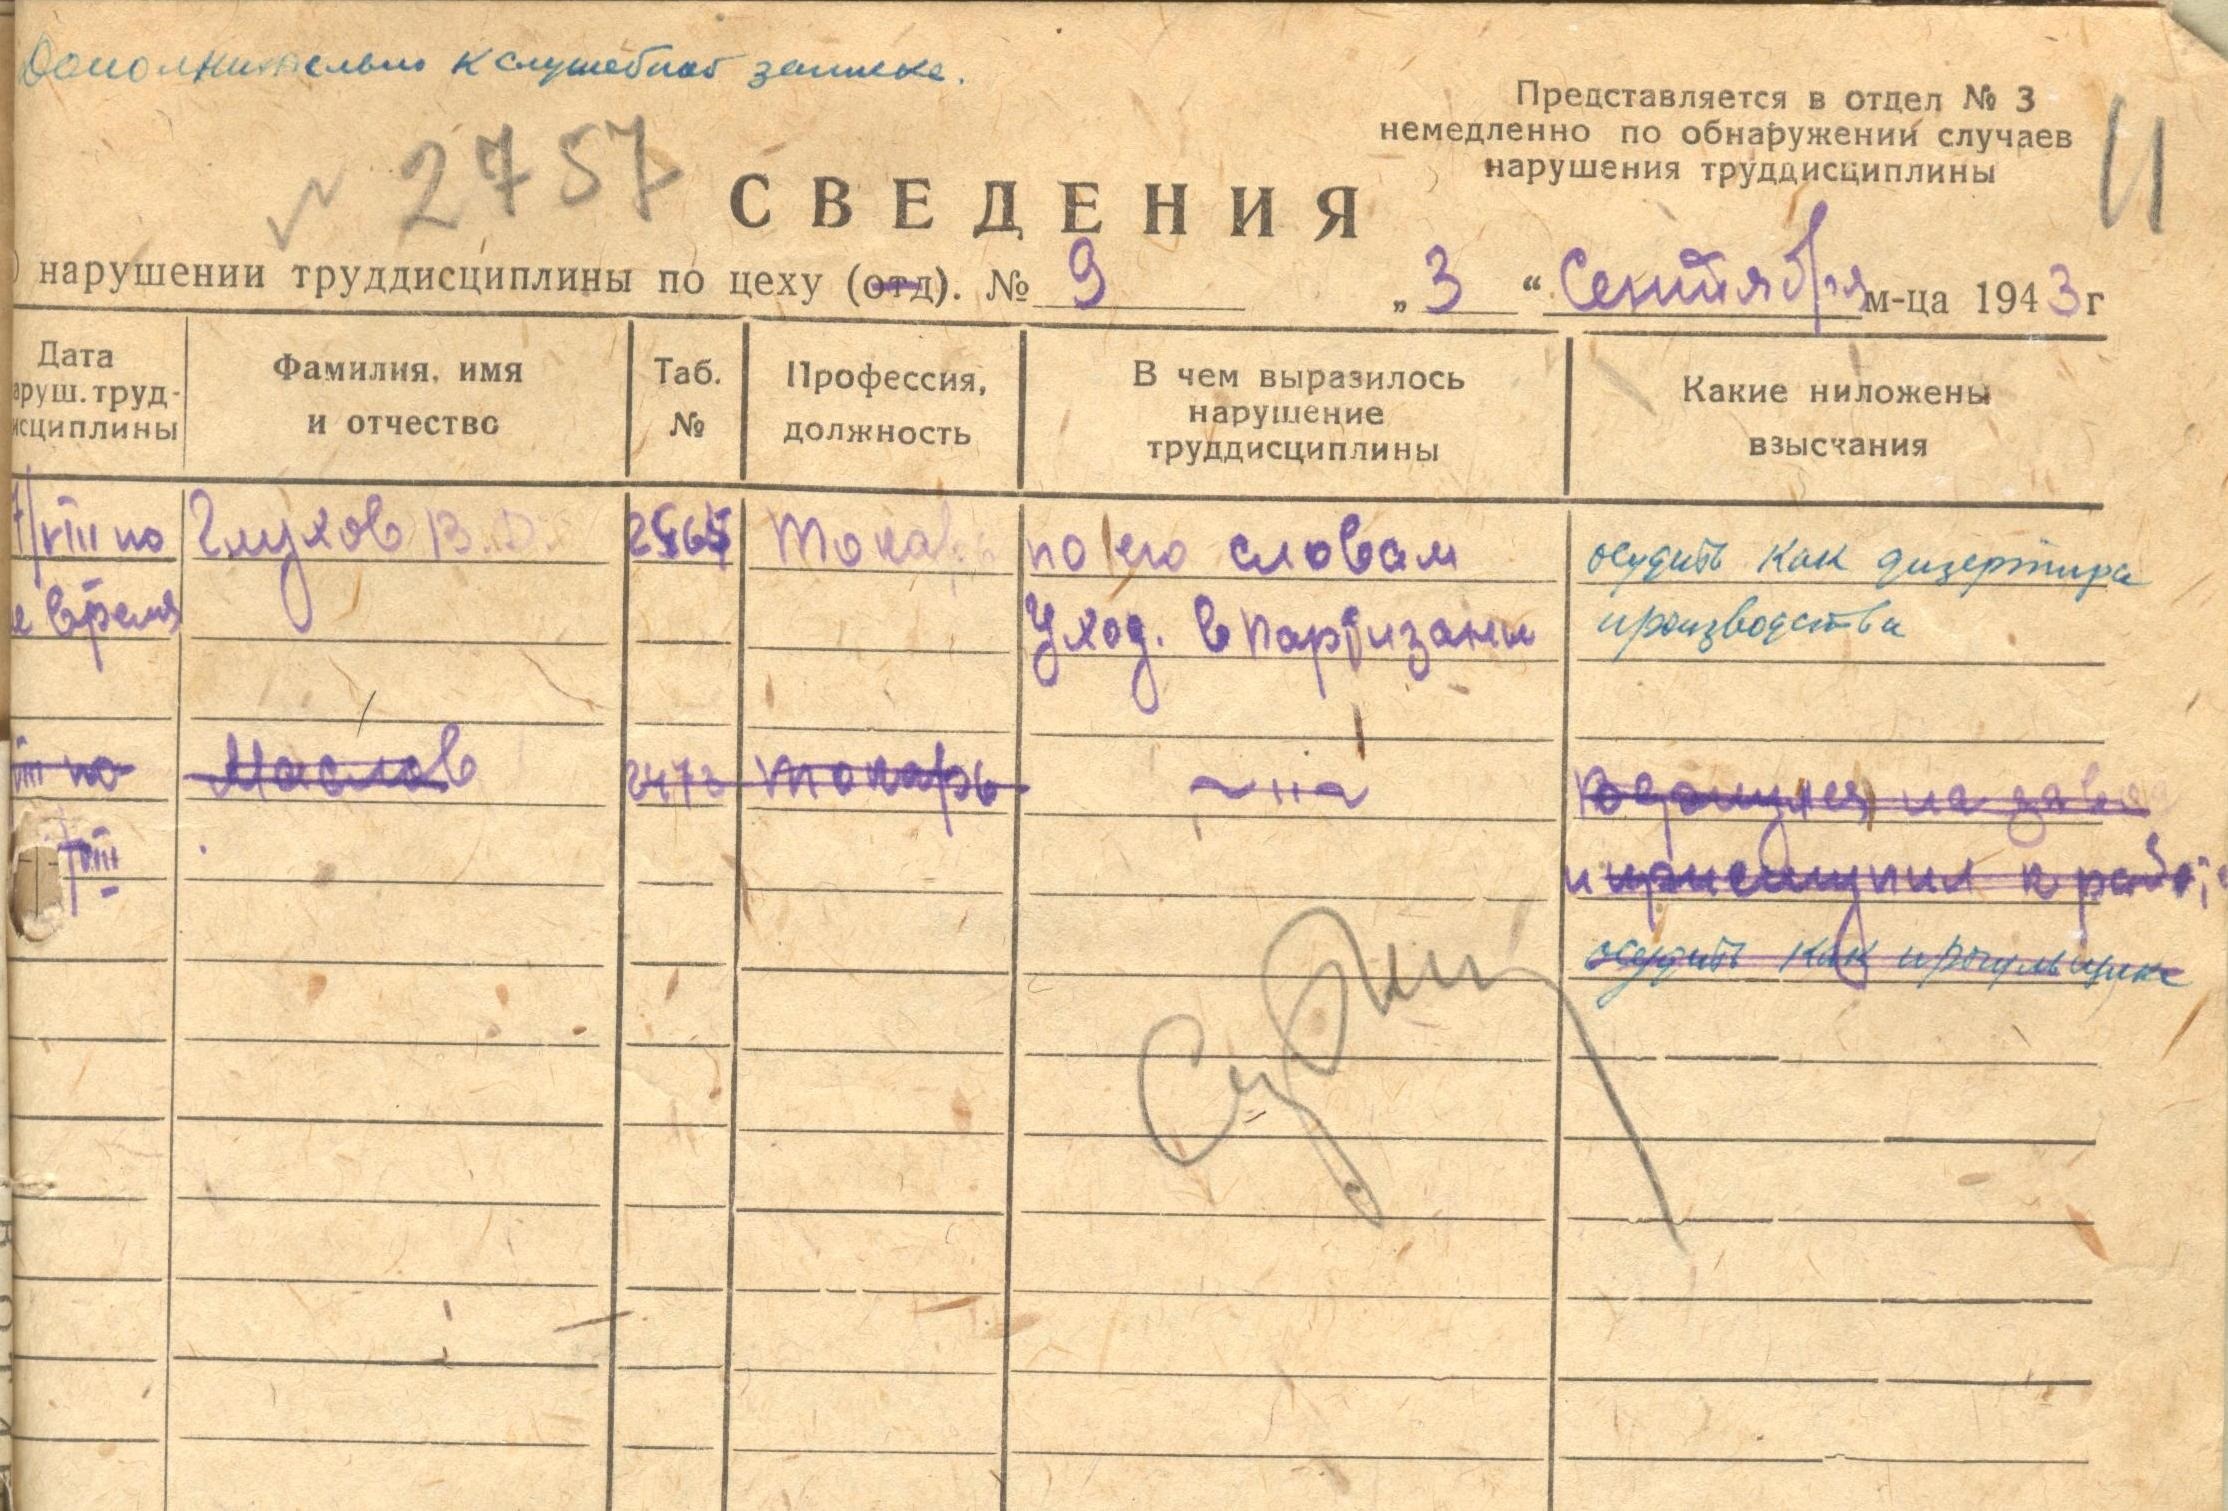 Дополнительно к служебной записке.
Представляется в отдел № 3
немедленно по обнаружении случаев
нарушения труддисциплины
11
2757
СВЕДЕНИЯ
нарушении труддисциплины по цеху (отд). № 9 „3“ Сентября м-ца 1943 г
Дата
аруш. труд-
исциплины
Фамилия, имя
и отчество
Таб.
№
Профессия,
должность
В чем выразилось
нарушение
труддисциплины
Какие ниложены
взыскания
7/VIII по Глухов В.Д. Токарь по его словам осудить как дизертира
е время Уход. в партизаны производства
VIII по Маслов 2473 токарь ~〃~ вернулся на завод
VIII и приступил к работе
осудить как прогульщика